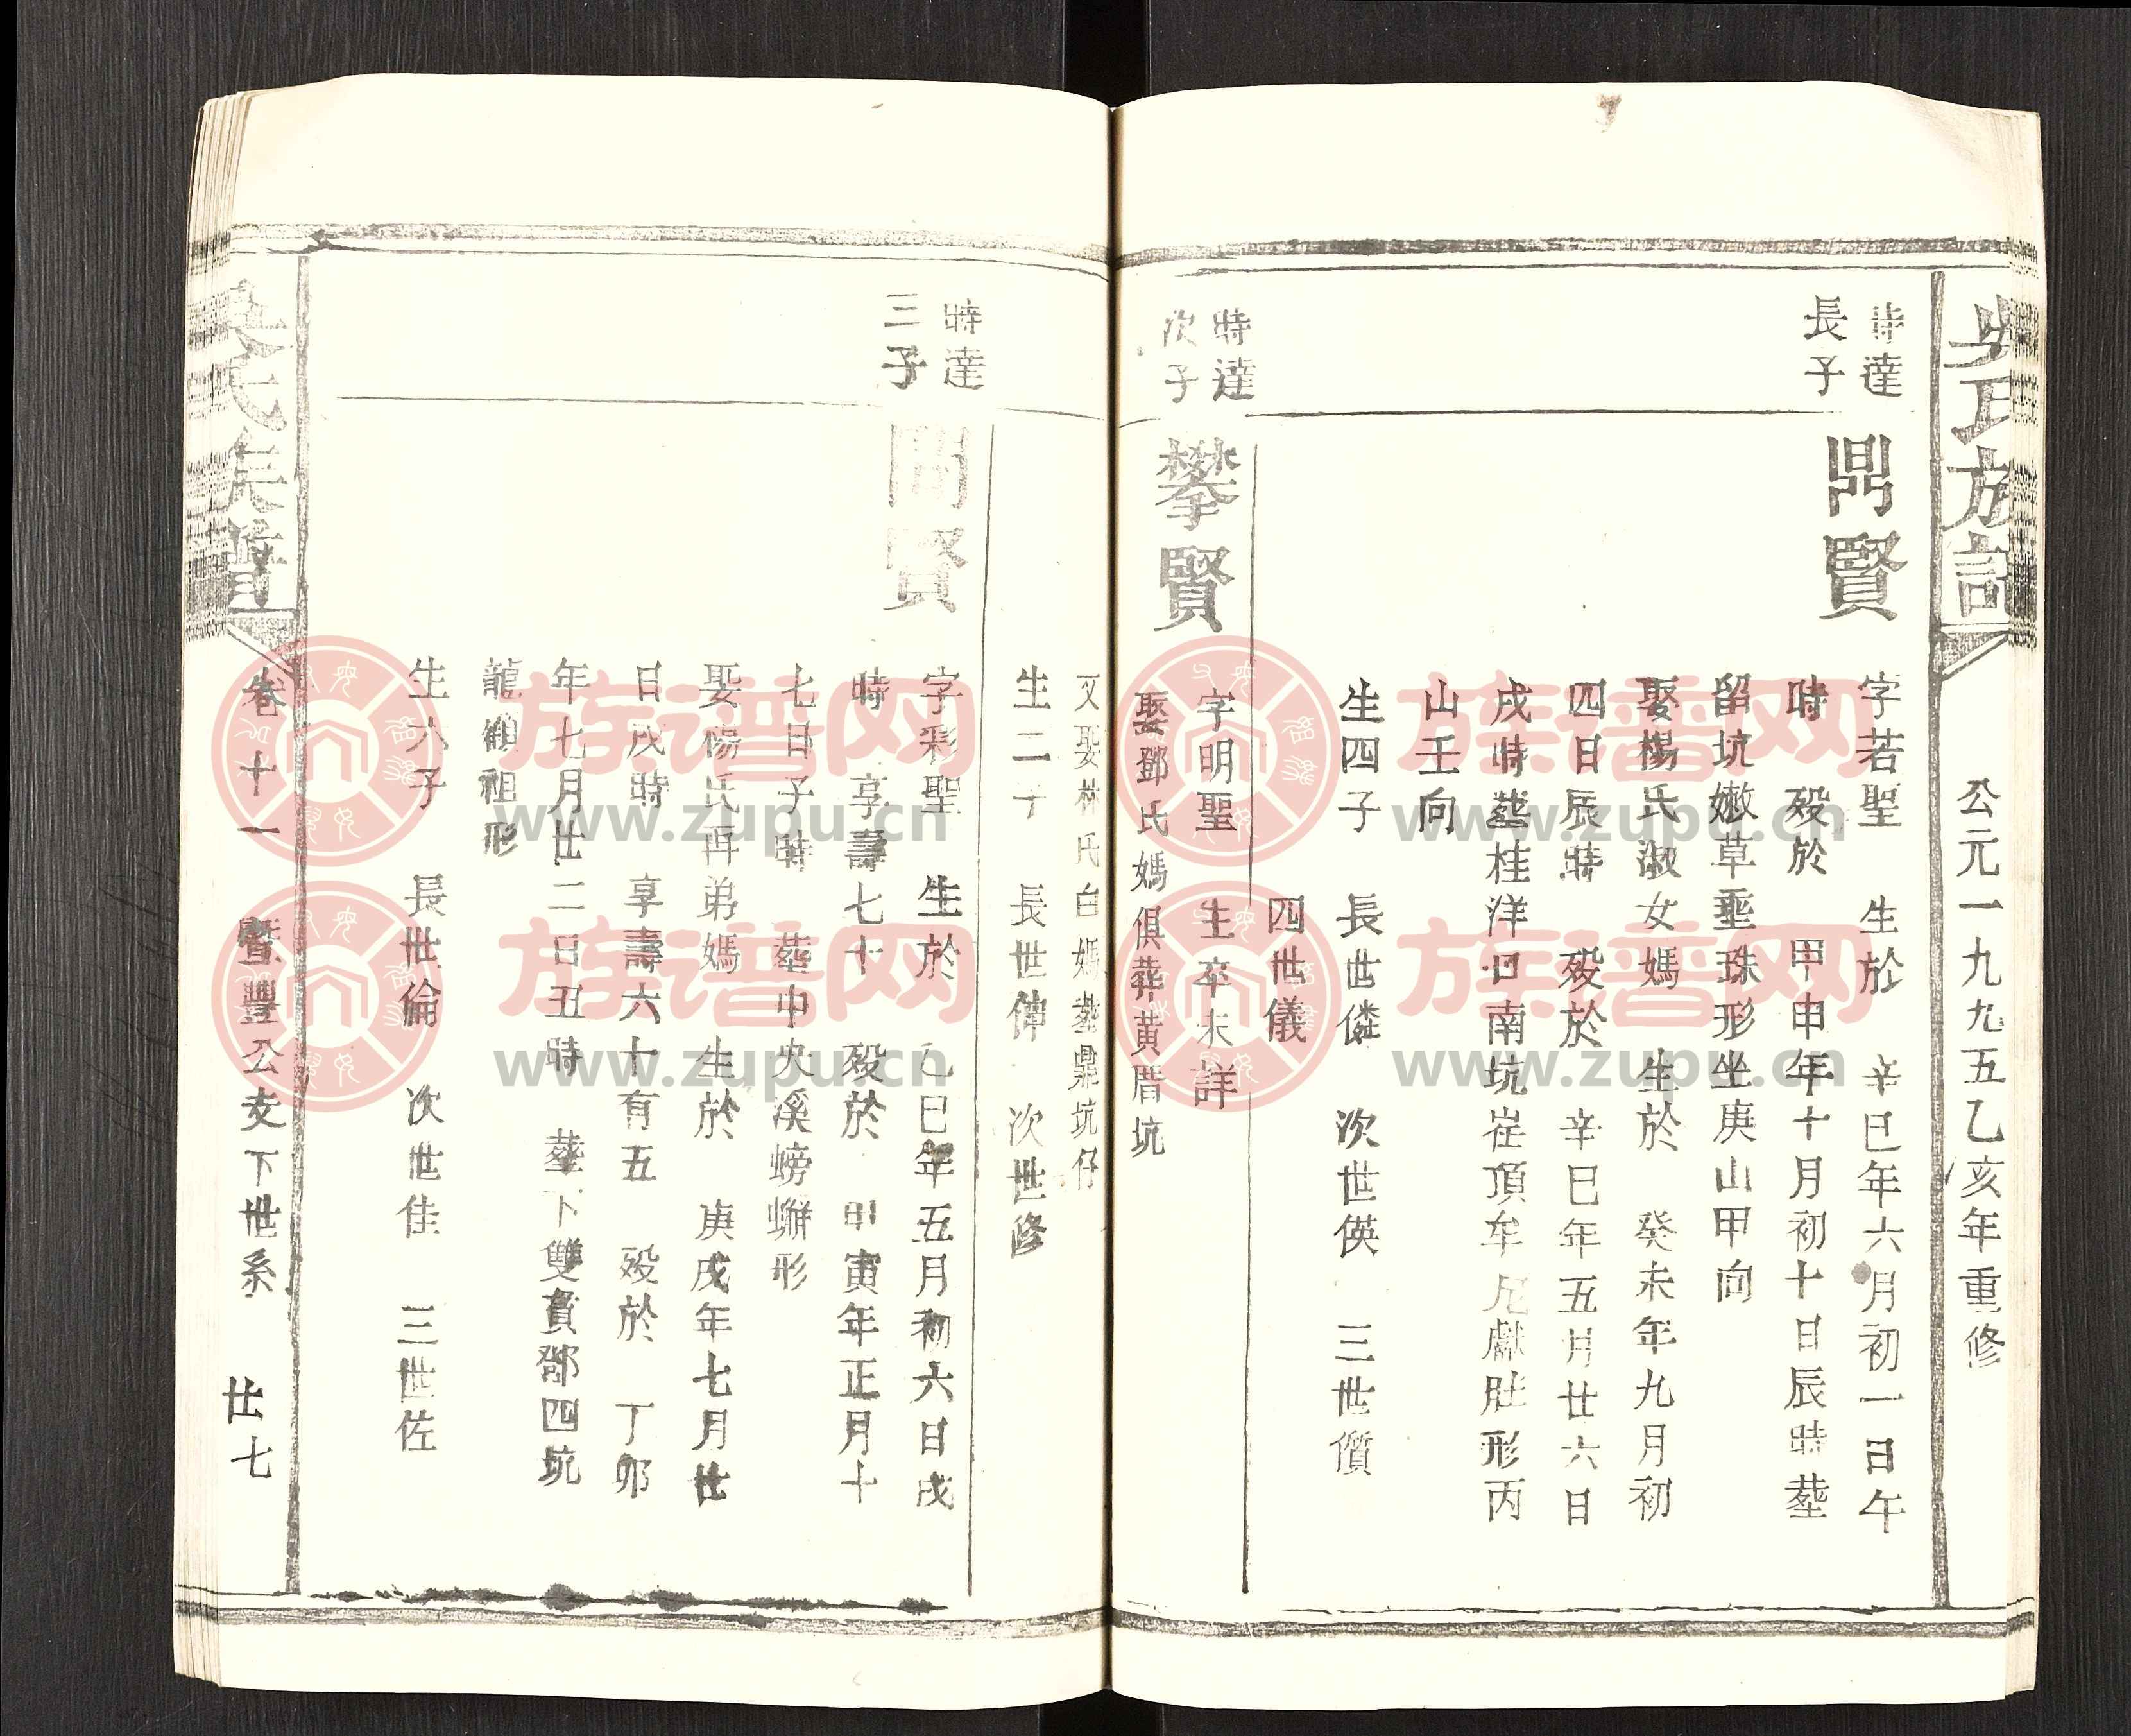 吳氏族譜
公元一九九五乙亥年重修
時達
長子
鼎賢
字若聖 生於 辛巳年六月初一日午
時 歿於 甲申年十月初十日辰時塟
留坑嫩草垂珠形坐庚山甲向
娶楊氏淑女媽 生於 癸未年九月初
四日辰時 歿於 辛巳年五月廿六日
戌時塟桂洋口南坑崔頂牟尼獻肚形丙
山壬向
生四子 長世僯 次世偀 三世儨
四世儀
時達
次子
攀賢
字明聖 生卒未詳
娶鄧氏媽俱葬黃厝坑
又娶林氏白媽塟鼎坑仔
生二子 長世伸 次世修
時達
三子
問賢
字彩聖 生於 乙巳年五月初六日戌
時 享壽七十 歿於 甲寅年正月十
七日子時 塟中央溪螃蠏形
娶陽氏再弟媽 生於 庚戌年七月廿
日戌時 享壽六十有五 歿於 丁卯
年七月廿二日丑時 塟下雙貴鄧四坑
龍顱祖形
生六子 長世倫 次世佳 三世佐
吳氏族譜
卷十一 暨豐公支下世系 廿七
族谱网
www.zupu.cn
族谱网
www.zupu.cn
族谱网
www.zupu.cn
族谱网
www.zupu.cn